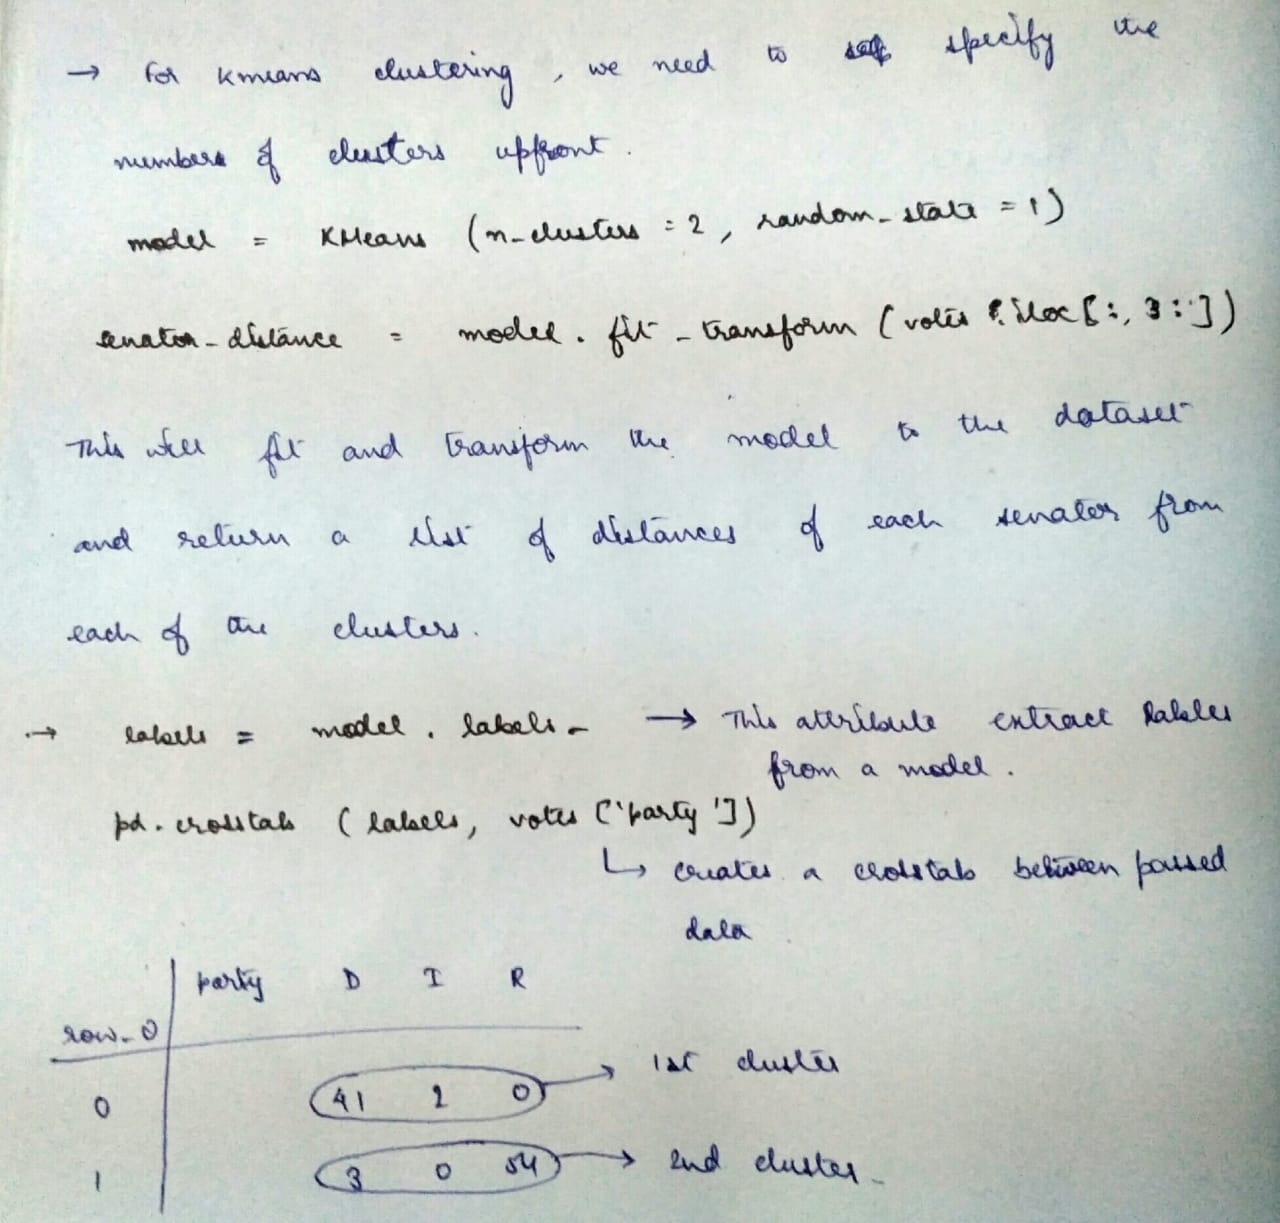 → For kmeans clustering, we need to specify the
numbers of clusters upfront.
model = KMeans (n_clusters = 2, random_state = 1)
senator_distance = model.fit_transform (votes.iloc[:, 3:])
This will fit and transform the model to the dataset
and return a list of distances of each senator from
each of the clusters.
→ labels = model.labels_ → This attribute extract lables
from a model.
pd.crosstab (labels, votes['party'])
↳ creates a crosstab between passed
data
party D I R
row_0
0 41 2 0 → 1st cluster
1 3 0 54 → 2nd cluster